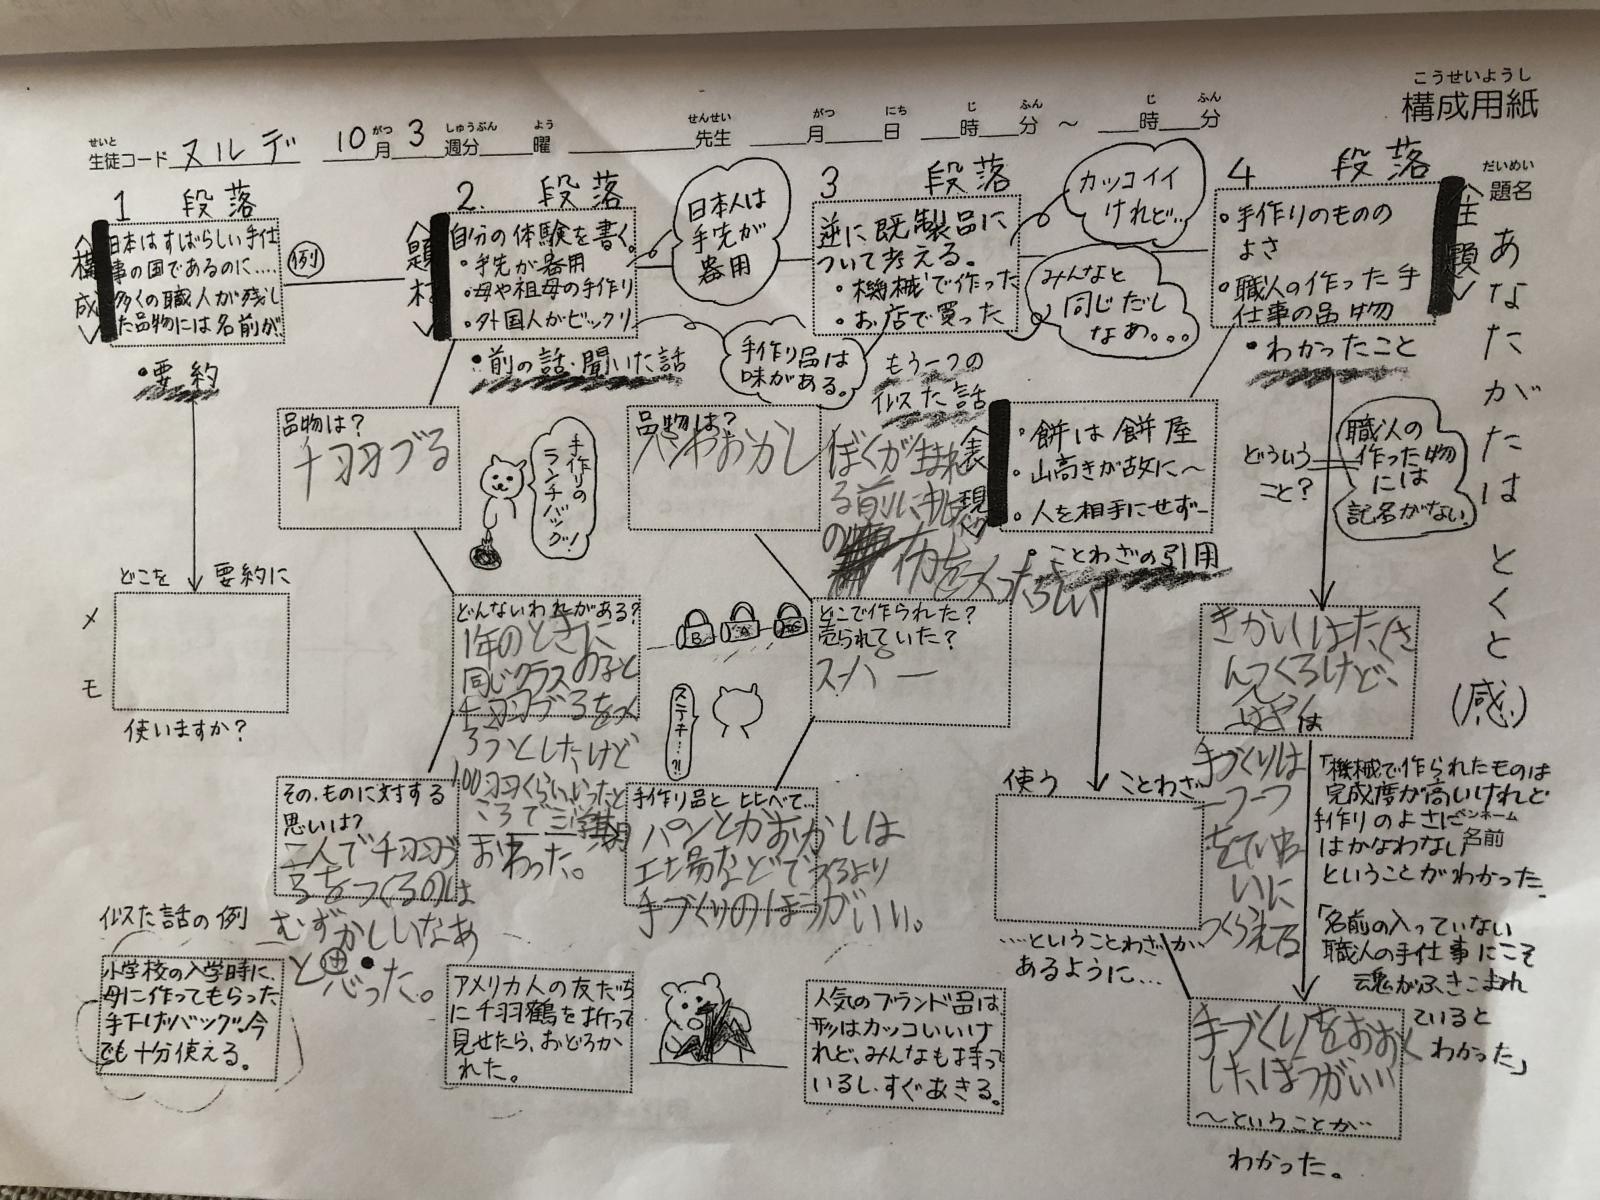 こうせいようし
構成用紙
せいと
生徒コード ヌルデ 10月3週分 曜 先生 月 日 時 分 ～ 時 分
がつ しゅうぶん よう せんせい がつ にち じ ふん じ ふん
だいめい
題名
あなたがたは とくと (感)
1 段落
〈構成〉
日本はすばらしい手仕
事の国であるのに....
多くの職人が残し
た品物には名前が
例
・要約
どこを 要約に
メモ
使いますか?
似た話の例
小学校の入学時に、
母に作ってもらった
手下げバッグ。今
でも十分使える。
2. 段落
〈題材〉
自分の体験を書く。
・手先が器用
・母や祖母の手作り
・外国人がビックリ
日本人は
手先が
器用
・前の話・聞いた話
手作り品は
味がある。
品物は?
千羽づる
手作りの
ランチバッグ!
どんないわれがある?
1年のときに
同じクラスの子と
千羽づるをつく
ろうとしたけど
100羽くらいいったと
ころで三学期
おわった。
その、ものに対する
思いは?
二人で千羽づ
るをつくるのは
むずかしいなあ
と思った。
アメリカ人の友だち
に千羽鶴を折って
見せたら、おどろか
れた。
3 段落
逆に既製品に
ついて考える。
・機械で作った
・お店で買った
カッコイイ
けれど...
みんなと
同じだし
なあ。。。
もう一つの
似た話
品物は?
パンやおかし
ぼくが生まれ
る前に
の
布をつくったらしい
B A
ステキ...?!
どこで作られた?
売られていた?
スーパー
手作り品と比べて...
パンとかおかしは
工場などでつくるより
手づくりのほうがいい。
人気のブランド品は、
形はカッコいいけ
れど、みんなも持って
いるし、すぐあきる。
〈表現〉
・餅は餅屋
・山高きが故に～
・人を相手にせず―
・ことわざの引用
使う ことわざ
....ということわざが
あるように...
4 段落
〈主題〉
・手作りのものの
よさ
・職人の作った手
仕事の品物
・わかったこと
どういう
こと?
職人の
作った物
には
記名がない
きかいはたくさ
んつくるけど、
手づくりは
一つ一つ
をていねいに
つくらえる
「機械で作られたものは
完成度が高いけれど
手作りのよさに
はかなわない
ということがわかった。
ペンネーム
名前
「名前の入っていない
職人の手仕事にこそ
魂がふきこまれ
ていると
わかった」
手づくりをおおく
した、ほうがいい
～ということが
わかった。